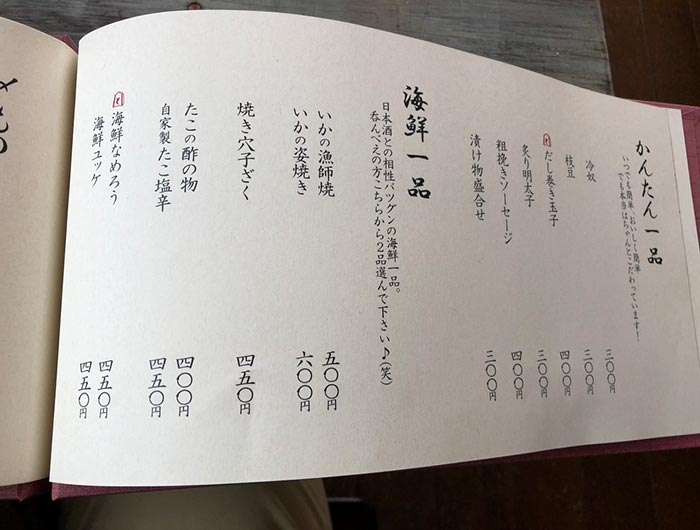 かんたん一品
いつでも簡単、おいしく簡単
でも本当はちゃんとこだわっています!
冷奴 三〇〇円
枝豆 三〇〇円
だし巻き玉子 四〇〇円
炙り明太子 三〇〇円
粗挽きソーセージ 四〇〇円
漬け物盛合せ 三〇〇円
海鮮一品
日本酒との相性バツグンの海鮮一品。
呑んべえの方こちらから2品選んで下さい♪(笑)
いかの漁師焼 五〇〇円
いかの姿焼き 六〇〇円
焼き穴子ざく 四五〇円
たこの酢の物 四〇〇円
自家製たこ塩辛 四五〇円
海鮮なめろう 四五〇円
海鮮ユッケ 四五〇円